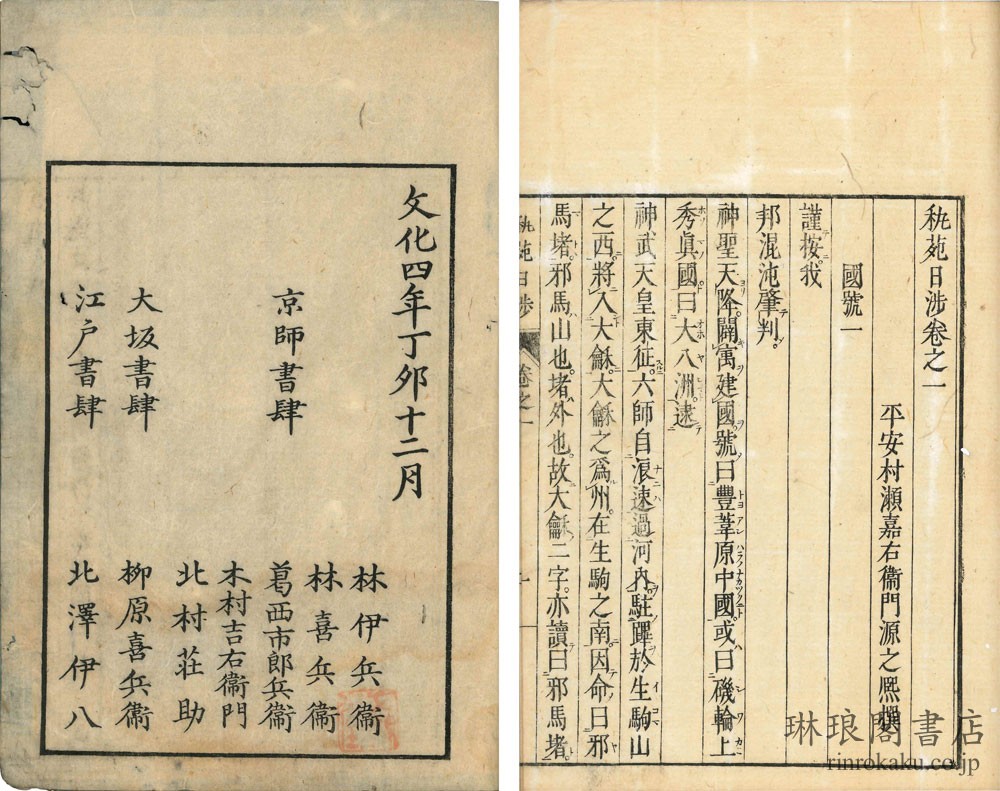 秇苑日涉卷之一
平安村瀨嘉右衞門源之熈撰
國號一
謹按我
邦混沌肇判。
神聖天降。闢寓建國號曰豐葦原中國。或曰磯輪上
秀眞國。曰大八洲。逮
神武天皇東征。六師自浪速過河內。駐蹕於生駒山
之西。將入大龢。大龢之爲州。在生駒之南。因命曰邪
馬堵。邪馬山也。堵外也。故大龢二字。亦讀曰邪馬堵。
秇苑日涉 卷之一 一
文化四年丁卯十二月
京師書肆
林伊兵衞
林喜兵衞
葛西市郎兵衞
木村吉右衞門
北村荘助
大坂書肆
柳原喜兵衞
江戸書肆
北澤伊八
琳琅閣書店
rinrokaku.co.jp